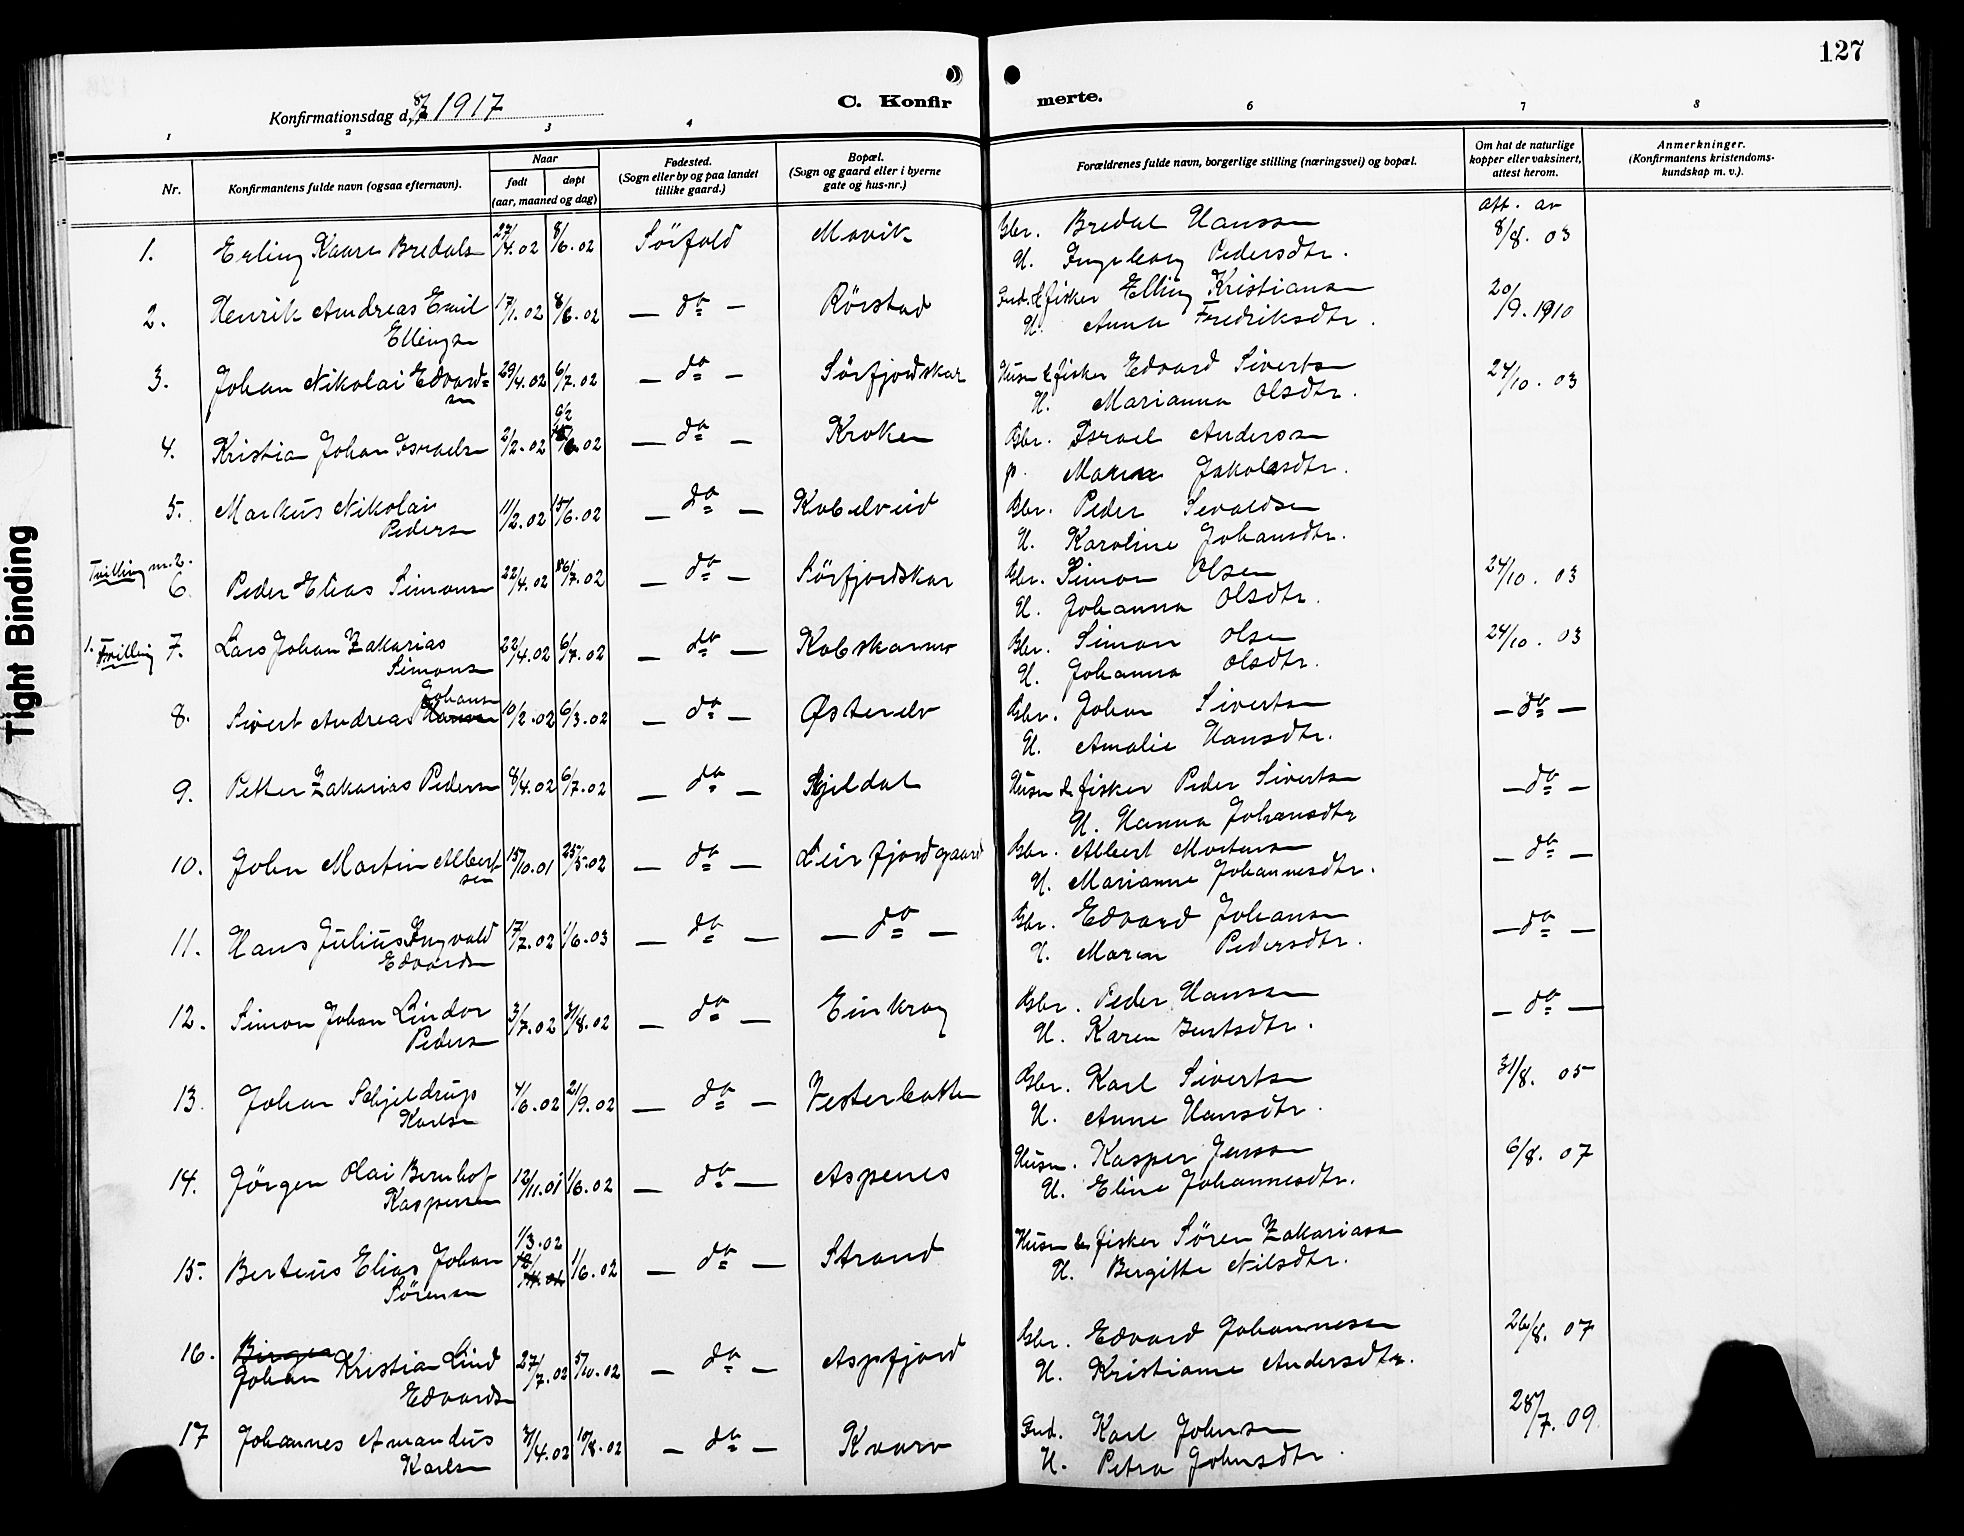 127
Konfirmationsdag d. 8/7 1917
C. Konfir merte.
1 2 3 4 6 7 8
Nr.
Konfirmantens fulde navn (ogsaa efternavn).
Naar
født døpt
(aar, maaned og dag)
Fødested.
(Sogn eller by og paa landet
tillike gaard.)
Bopæl.
(Sogn og gaard eller i byerne
gate og hus-nr.)
Forældrenes fulde navn, borgerlige stilling (næringsvei) og bopæl.
Om hat de naturlige
kopper eller vaksinert,
attest herom.
Anmerkninger.
(Konfirmantens kristendoms-
kundskap m. v.).
1. Erling Kaare Bredals 27/4.02 8/6.02 Sörfold Movik Gbr. Bredal Hansen att. av 8/8. 03
H. Ingeborg Pedersdtr.
2. Henrik Andreas Emil 17/1.02 8/6.02 — do — Rörstad Grd. & fisker Elling Kristiansen 20/9. 1910
Ellingsen H. Anna Fredriksdtr.
3. Johan Nikolai Edvard- 29/4.02 6/7.02 — do — Sörfjordskar Husm & fisker Edvard Sivertsen 24/10. 03
sen H. Marianna Olsdtr.
4. Kristian Johan Israelsen 2/2.02 6.02 — do — Kroken Gbr. Israel Andersen
Jakobsdtr.
5. Markus Nikolai 11/2.02 15/6.02 — do — Kobelveid Gbr. Peder Sevaldsen
Pedersen H. Karoline Johansdtr.
Tvilling nr. 2.
6 Peder Elias Simonsen 22/4.02 6/7.02 — do — Sörfjordskar Gbr. Simon Olsen 24/10. 03
H. Johanna Olsdtr.
1. Tvilling 7. Lars Johan Zakarias 22/4.02 6/7.02 — do — Kobskarmo Gbr. Simon Olsen 24/10. 03
Simonsen H. Johanna Olsdtr.
Johansen
8. Sivert Andreas Hansen 10/2.02 6/3.02 — do — Østerelv Gbr. Johan Sivertsen — do —
H. Amalie Hansdtr.
9. Petter Zakarias Pedersen 8/4.02 6/7.02 — do — Kjeldal Husm & fisker Peder Sivertsen — do —
H. Hanna Johansdtr
10. John Martin Albert 15/10.01 25/5.02 — do — Leirfjordgaard Gbr. Albert Mortensen — do —
sen H. Marianne Johannesdtr.
11. Hans Julius Ingvald 17/2.02 1/6.03 — do — — do — Gbr. Edvard Johansen — do —
Edvardsen H. Maren Pedersdtr.
12. Simon Johan Lindor 3/7.02 31/8.02 — do — Einkrog Gbr. Peder Hansen — do —
Pedersen H. Karen Bentsdtr.
13. Johan Schjeldrup 4/6.02 21/9.02 — do — Vesterbotten Gbr. Karl Sivertsen 31/8. 05
Karlsen H. Anne Hansdtr.
14. Jörgen Olai Bernhof 12/11.01 1/6.02 — do — Aspenes Husm. Kasper Jensen 6/8. 07
Kaspersen H. Eline Johannesdtr.
1/3.02
15. Berteus Elias Johan 1/6.02 — do — Strand Husm & fisker Sören Zakariasen
Sörensen H. Birgitte Nilsdtr.
16. Birger
Johan Kristian Lind 27/7.02 5/10.02 — do — Aspfjord Gbr. Edvard Johannesen 26/8. 07
Edvardsen H. Kristianne Andersdtr.
17 Johannes Amandus 3/4.02 10/8.02 — do — Kvarv Grd. Karl Johnsen 28/7. 09
Karlsen H. Petra Johnsdtr
Tight Binding